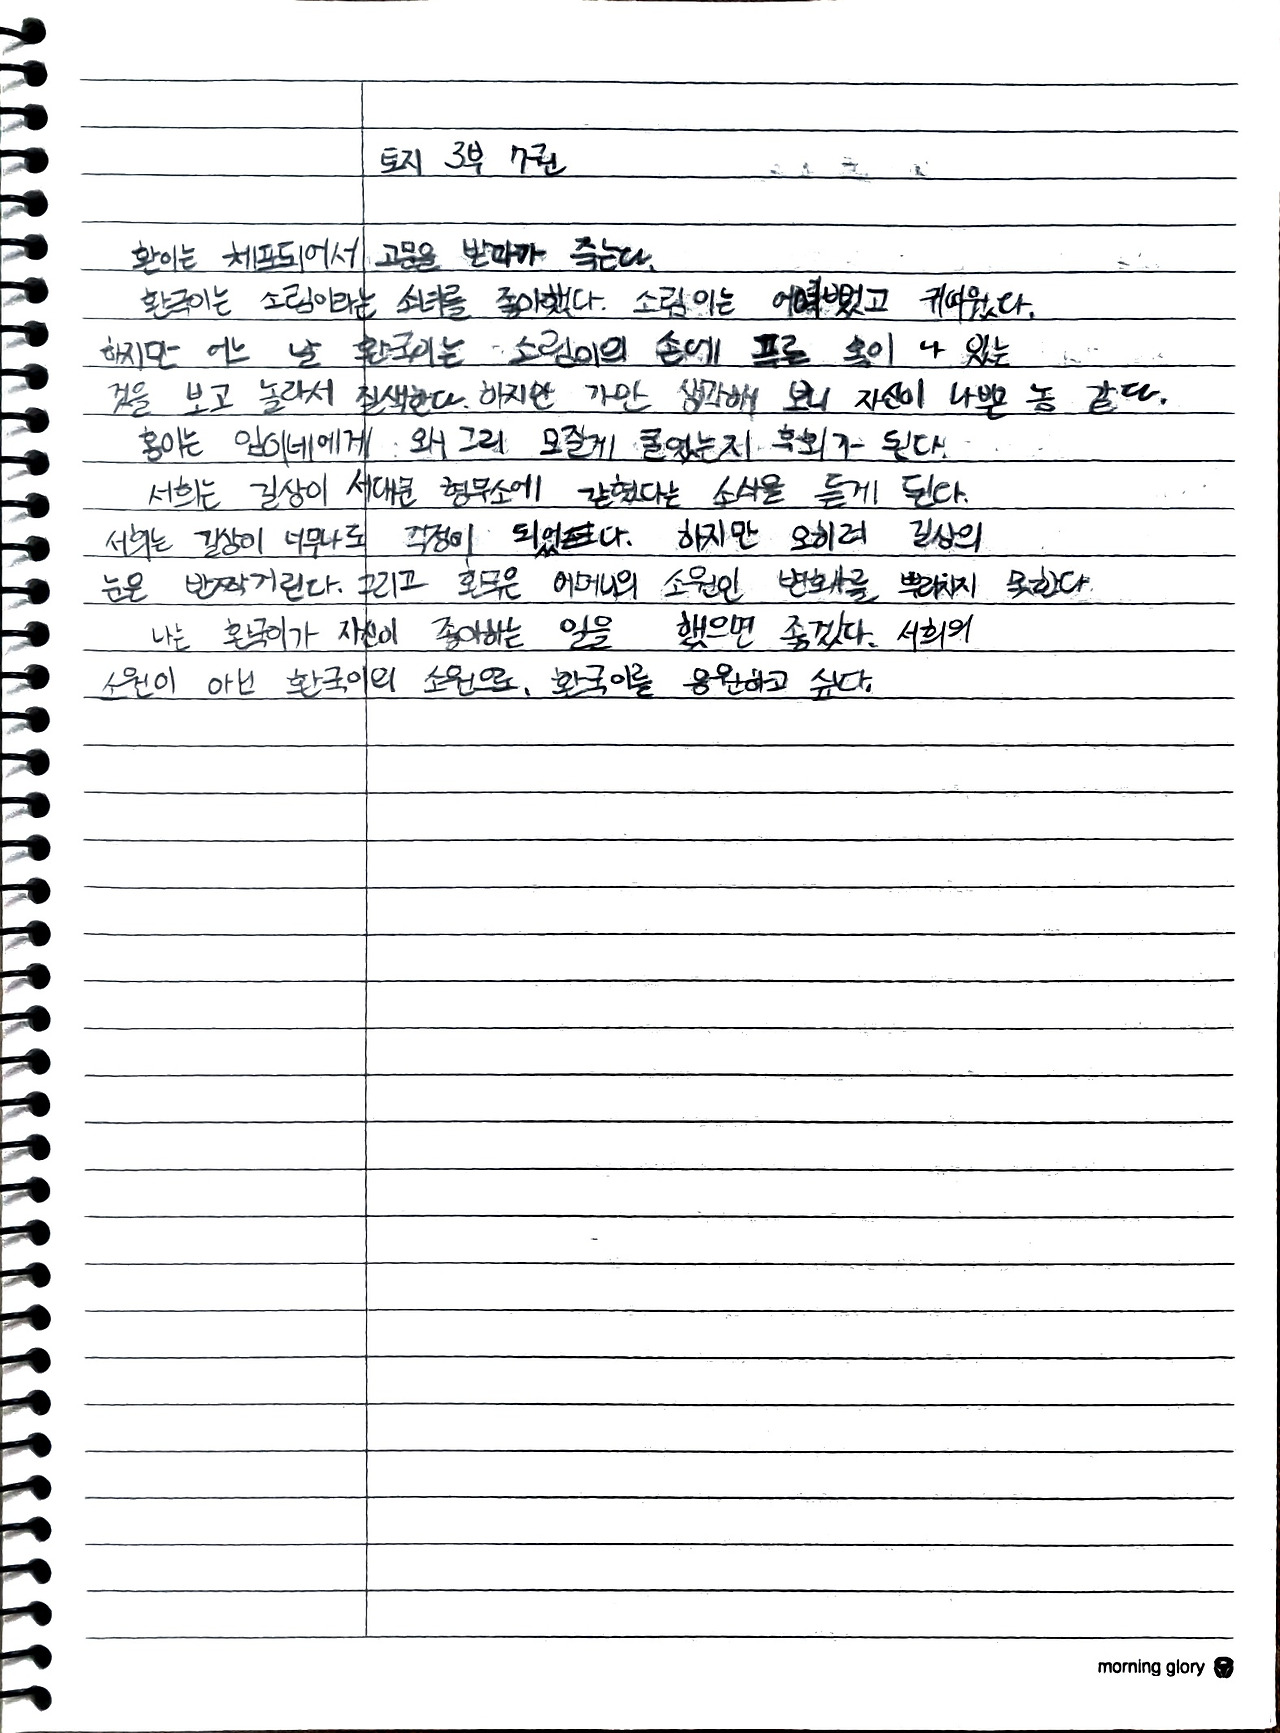 토지 3부 7권
환이는 체포되어서 고문을 받다가 죽는다.
환국이는 소림이라는 소녀를 좋아했다. 소림이는 어여뻤고 귀여웠다.
하지만 어느 날 환국이는 소림이의 손에 푸른 혹이 나 있는
것을 보고 놀라서 질색한다. 하지만 가만 생각해 보니 자신이 나쁜 놈 같다.
홍이는 임이네에게 왜 그리 모질게 굴었는지 후회가 된다.
서희는 길상이 서대문 형무소에 갇혔다는 소식을 듣게 된다.
서희는 길상이 너무나도 걱정이 되었다. 하지만 오히려 길상의
눈은 반짝거린다. 그리고 환국은 어머니의 소원인 변호사를 뿌리치지 못한다.
나는 환국이가 자신이 좋아하는 일을 했으면 좋겠다. 서희의
소원이 아닌 환국이의 소원으로, 환국이를 응원하고 싶다.
morning glory